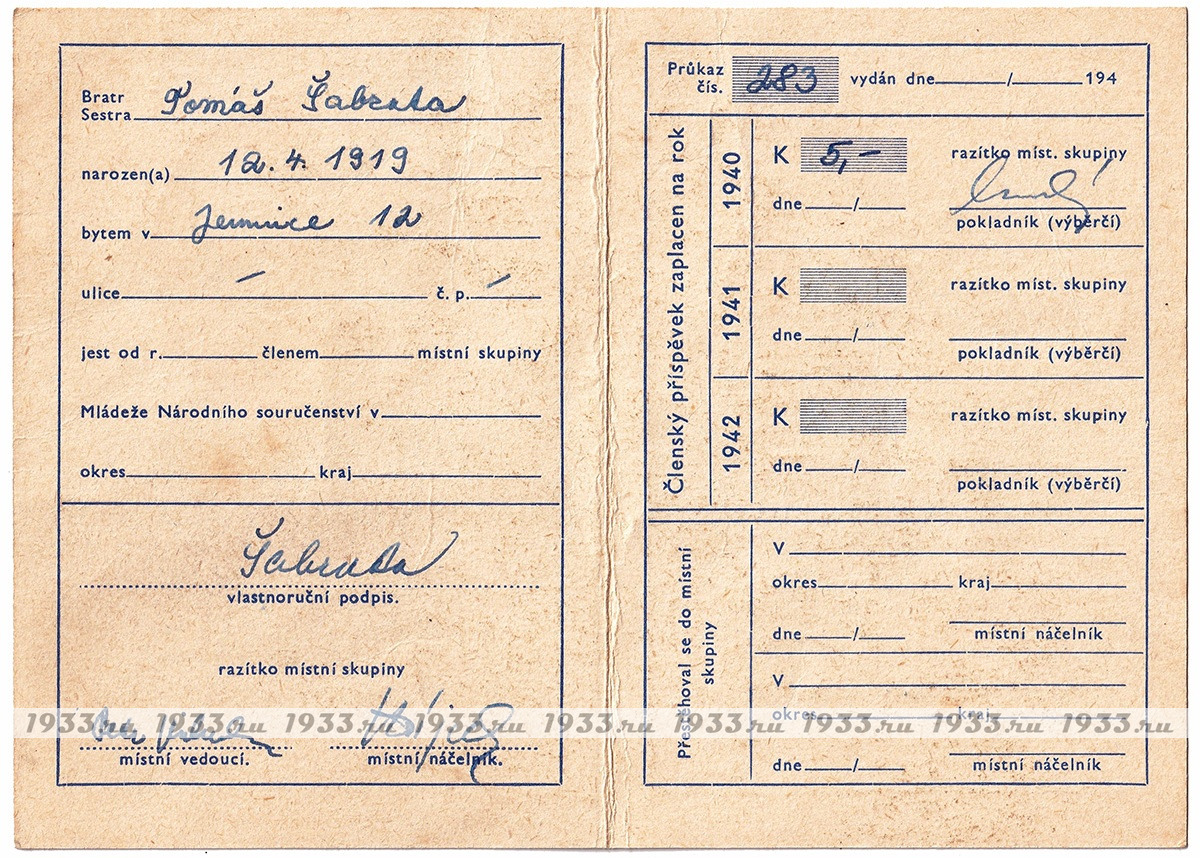 Bratr
Sestra Tomáš Šabrata
narozen(a) 12. 4. 1919
bytem v Jemnice 12
ulice — č. p. —
jest od r. členem místní skupiny
Mládeže Národního souručenství v
okres kraj
vlastnoruční podpis.
razítko místní skupiny
místní vedoucí. místní náčelník.
Průkaz čís. 283 vydán dne / 194
Členský příspěvek zaplacen na rok
1940
K 5,- razítko míst. skupiny
dne /
pokladník (výběrčí)
1941
K razítko míst. skupiny
dne /
pokladník (výběrčí)
1942
K razítko míst. skupiny
dne /
pokladník (výběrčí)
Přestěhoval se do místní skupiny
V
okres kraj
dne / místní náčelník
V
okres kraj
dne / místní náčelník
1933.ru 1933.ru 1933.ru 1933.ru 1933.ru 1933.ru 1933.ru 1933.ru 1933.ru